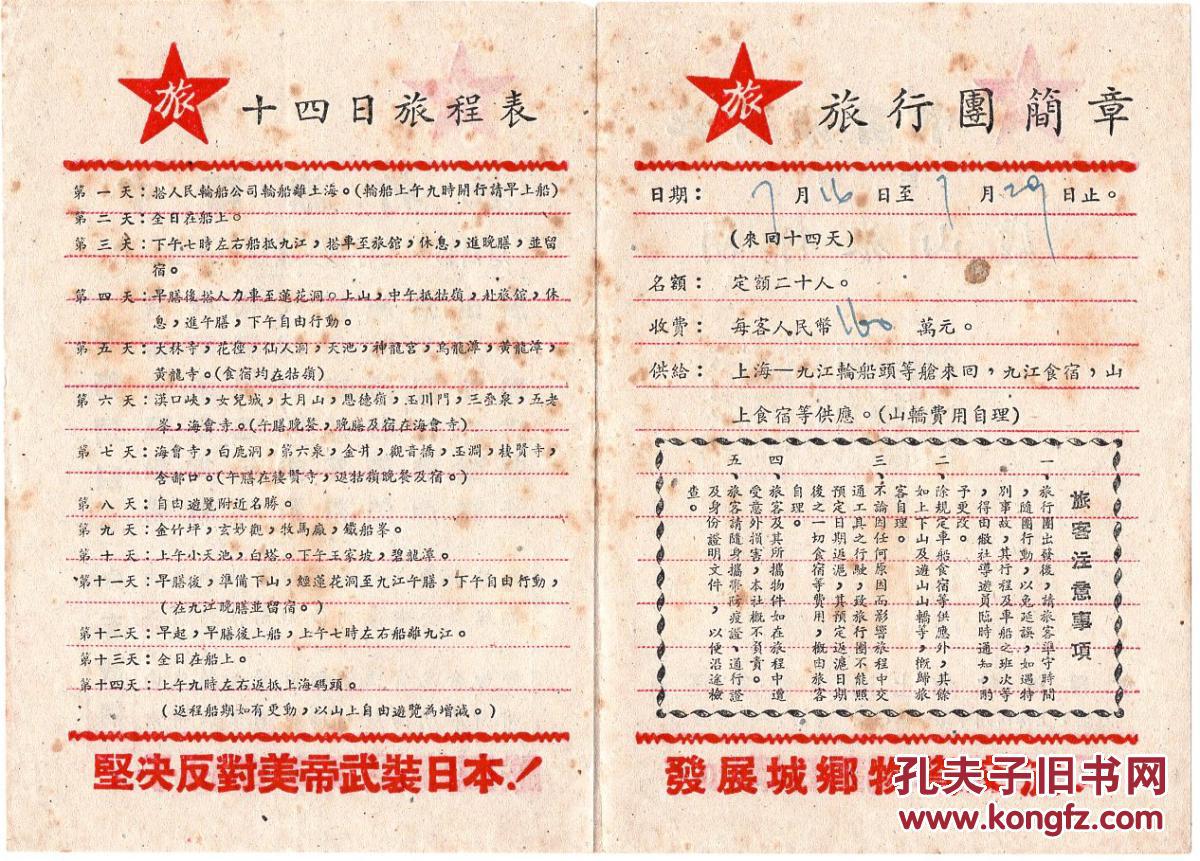 旅 十四日旅程表
第一天：搭人民輪船公司輪船離上海。(輪船上午九時開行請早上船)
第二天：全日在船上。
第三天：下午七時左右船抵九江，搭車至旅館，休息，進晚膳，並留
宿。
第四天：早膳後搭人力車至蓮花洞。上山，中午抵牯嶺，赴旅館，休
息，進午膳，下午自由行動。
第五天：大林寺，花徑，仙人洞，天池，神龍宮，烏龍潭，黃龍潭，
黃龍寺。(食宿均在牯嶺)
第六天：漢口峽，女兒城，大月山，恩德嶺，玉川門，三叠泉，五老
峯，海會寺。(午膳晚餐，晚膳及宿在海會寺)
第七天：海會寺，白鹿洞，第六泉，金井，觀音橋，玉澗，棲賢寺，
含鄱口。(午膳在棲賢寺，返牯嶺晚餐及宿。)
第八天：自由遊覽附近名勝。
第九天：金竹坪，玄妙觀，牧馬廠，鐵船峯。
第十天：上午小天池，白塔。下午王家坡，碧龍潭。
第十一天：早膳後，準備下山，經蓮花洞至九江午膳，下午自由行動，
(在九江晚膳並留宿。)
第十二天：早起，早膳後上船，上午七時左右船離九江。
第十三天：全日在船上。
第十四天：上午九時左右返抵上海碼頭。
(返程船期如有更動，以山上自由遊覽為增減。)
堅决反對美帝武裝日本！
旅 旅行團簡章
日期：7月16日至7月29日止。
(來回十四天)
名額：定額二十人。
收費：每客人民幣160萬元。
供給：上海—九江輪船頭等艙來回，九江食宿，山
上食宿等供應。(山轎費用自理)
旅客注意事項
一、旅行團出發後，請旅客準守時間
，隨團行動，以免延誤，如遇特
別事故，其行程及車船之班次等
，得由敝社導遊員臨時通知，酌
予更改。
二、除規定車船食宿等供應外，其餘
如上下山及遊山山轎等，概歸旅
客自理。
三、不論因任何原因而影響旅程中交
通工具之行駛，致旅行團不能照
預定日期返滬，其預定返滬日期
後之一切食宿等費用，概由旅客
自理。
四、旅客及其所攜物件如在旅程中遭
受意外損害，本社概不負責。
五、旅客請隨身攜帶防疫證、通行證
及身份證明文件，以便沿途檢
查。
發展城鄉物
孔夫子旧书网
www.kongfz.com